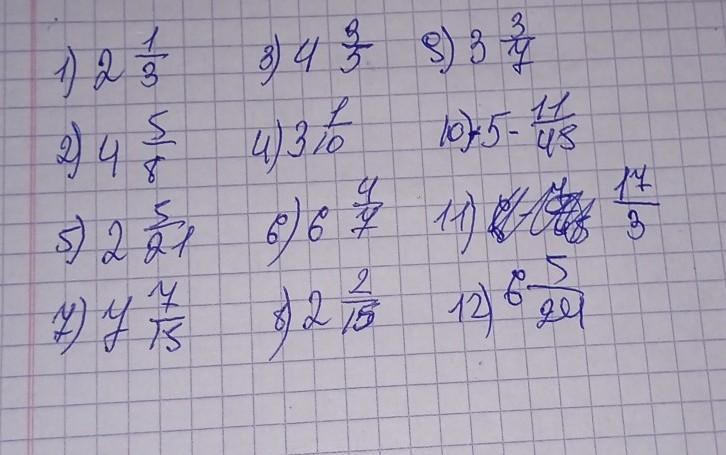 1) 2 1/3 3) 4 3/5 9) 3 3/7
2) 4 5/8 4) 3 1/10 10) -5 - 11/48
5) 2 5/21 6) 6 4/7 11) 17/3
7) 7 7/15 8) 2 2/15 12) 6 5/24